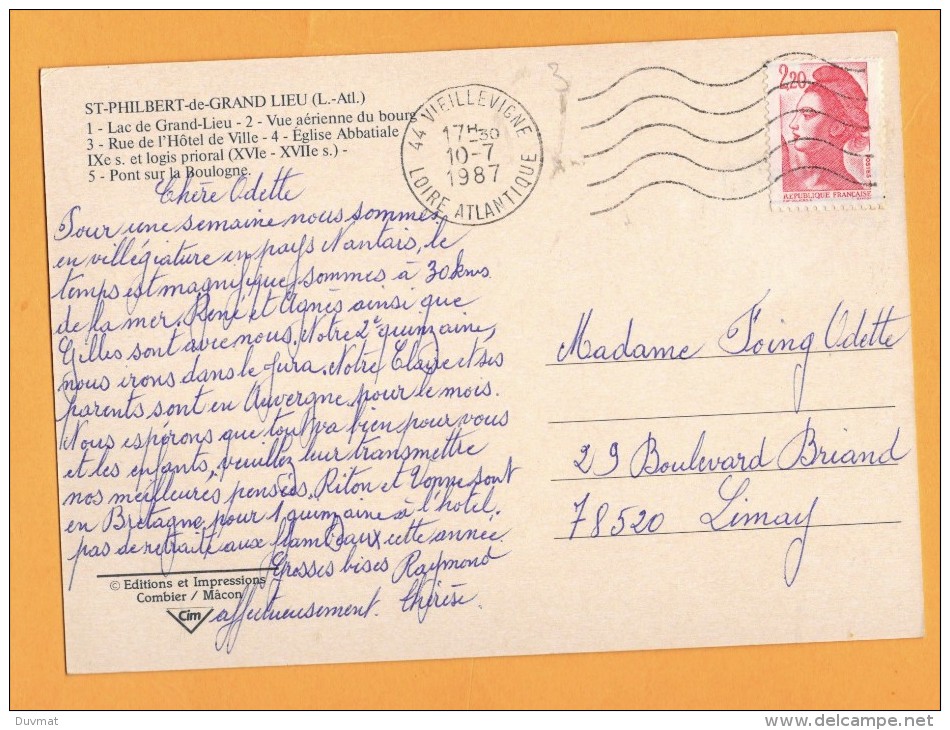 ST-PHILBERT-de-GRAND LIEU (L.-Atl.)
1 - Lac de Grand-Lieu - 2 - Vue aérienne du bourg
3 - Rue de l'Hôtel de Ville - 4 - Église Abbatiale
IXe s. et logis prioral (XVIe - XVIIe s.) -
5 - Pont sur la Boulogne.
Chère Odette
Pour une semaine nous sommes
en villégiature en pays Nantais, le
temps est magnifique, sommes à 30 kms
de la mer. René et Agnès ainsi que
Gilles sont avec nous. Notre 2e quinzaine,
nous irons dans le Jura. Notre Claire et ses
parents sont en Auvergne pour le mois.
Nous espérons que tout va bien pour vous
et les enfants, veuillez leur transmettre
nos meilleures pensées. Riton et Vonne sont
en Bretagne pour 1 quinzaine à l'hotel.
pas de retraite aux flambeaux cette année
Grosses bises Raymond
affectueusement. Thérèse.
© Editions et Impressions
Combier / Mâcon
Cim
44 VIEILLEVIGNE
17H30
10-7
1987
LOIRE ATLANTIQUE
2,20
POSTES
REPUBLIQUE FRANÇAISE
Madame Foing Odette
29 Boulevard Briand
78520 Limay
Duvmat
www.delcampe.net